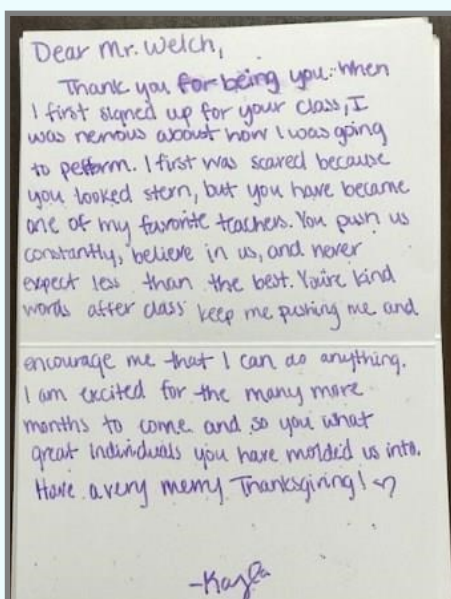 Dear Mr. Welch,
Thank you for being you. When
I first signed up for your class, I
was nervous about how I was going
to perform. I first was scared because
you looked stern, but you have became
one of my favorite teachers. You push us
constantly, believe in us, and never
expect less than the best. You're kind
words after class keep me pushing me and
encourage me that I can do anything.
I am excited for the many more
months to come and so you what
great individuals you have molded us into.
Have a very merry Thanksgiving! ♡
-Kayla